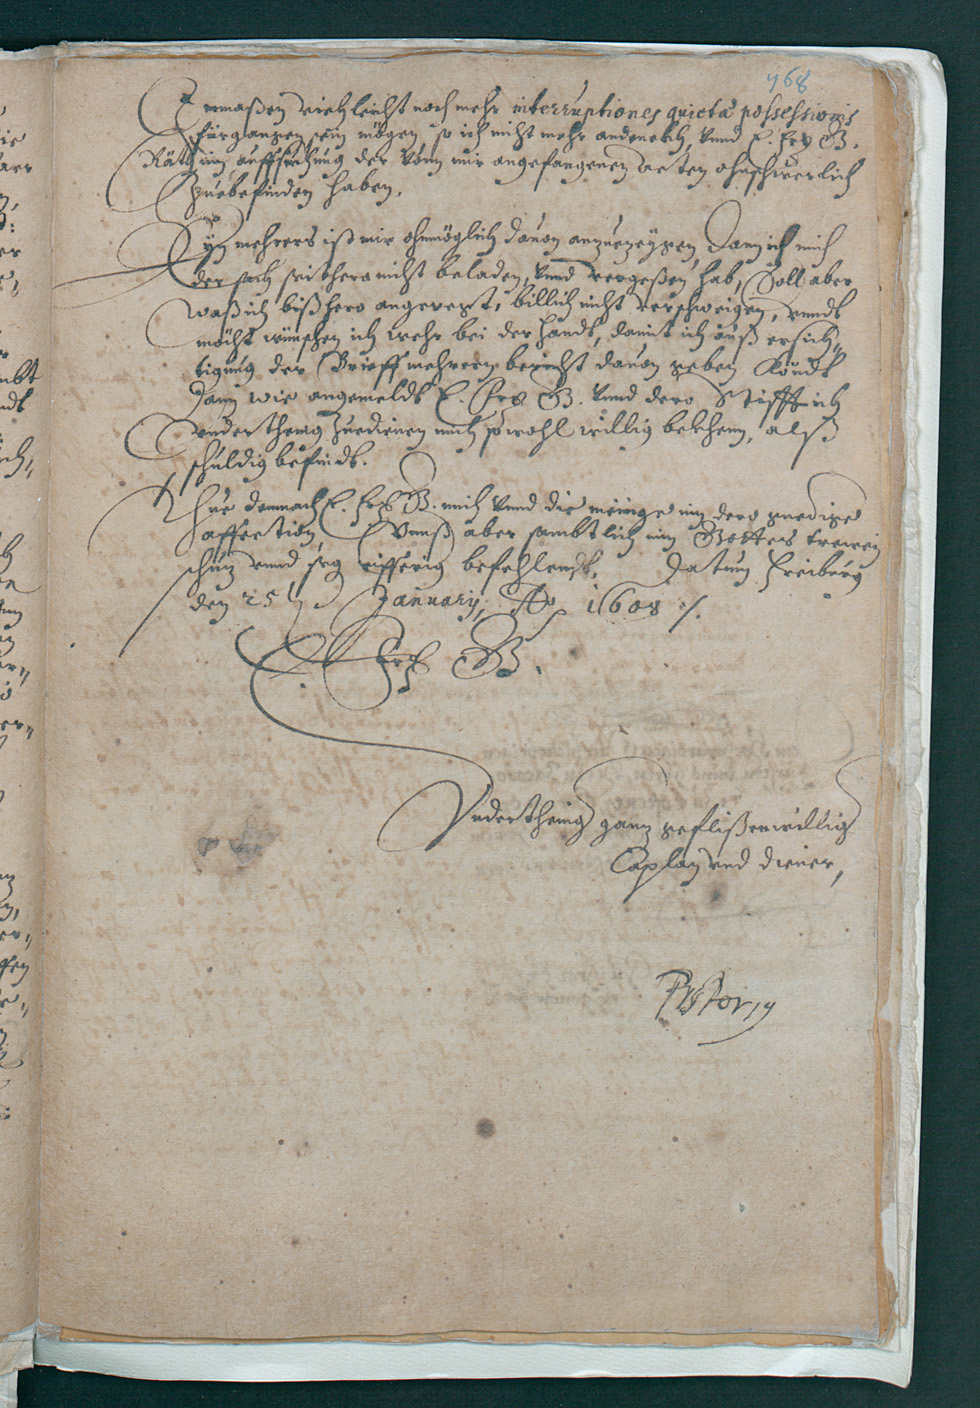 768
Ermaßen vielleicht noch mehr interruptiones quietæ possessionis
fürgangen sein mögen, so ich nicht mehr andenckh, Vnnd E. Frl. G.
Räth in auffsuchung der von mir angefangenen Acten ohnschwerlich
zuebefinden haben.
Ein mehrers ist mir ohnmöglich dauon anzuezeygen, Dann ich mich
der sach seithero nicht beladen, vnnd vergeßen hab, Soll aber
waß ich bißhero angeregt, billich nicht verschweigen, vnndt
möcht wünschen ich wehr bei der handt, damit ich auß ersich„
tigung der Brieff mehrern bericht dauon geben köndt
Dann wie angemeldt E. Frl. G. Vnnd dero Stifft ich
vnderthenig zuedienen mich sowohl willig bekhenn, alß
schuldig befindt.
Thue demnach E. Frl. G. mich vnnd die meinige in dero gnedige
affection Vnnß aber sambtlich in Gottes trewen
schuz vnnd seg eifferig befehlendt, Datum Freiburg
den 25 January, Ao 1608 /.
E. Frl. G.
Vnderthenig ganz geflißenwillig
Caplan vnd diener,
Pistorij